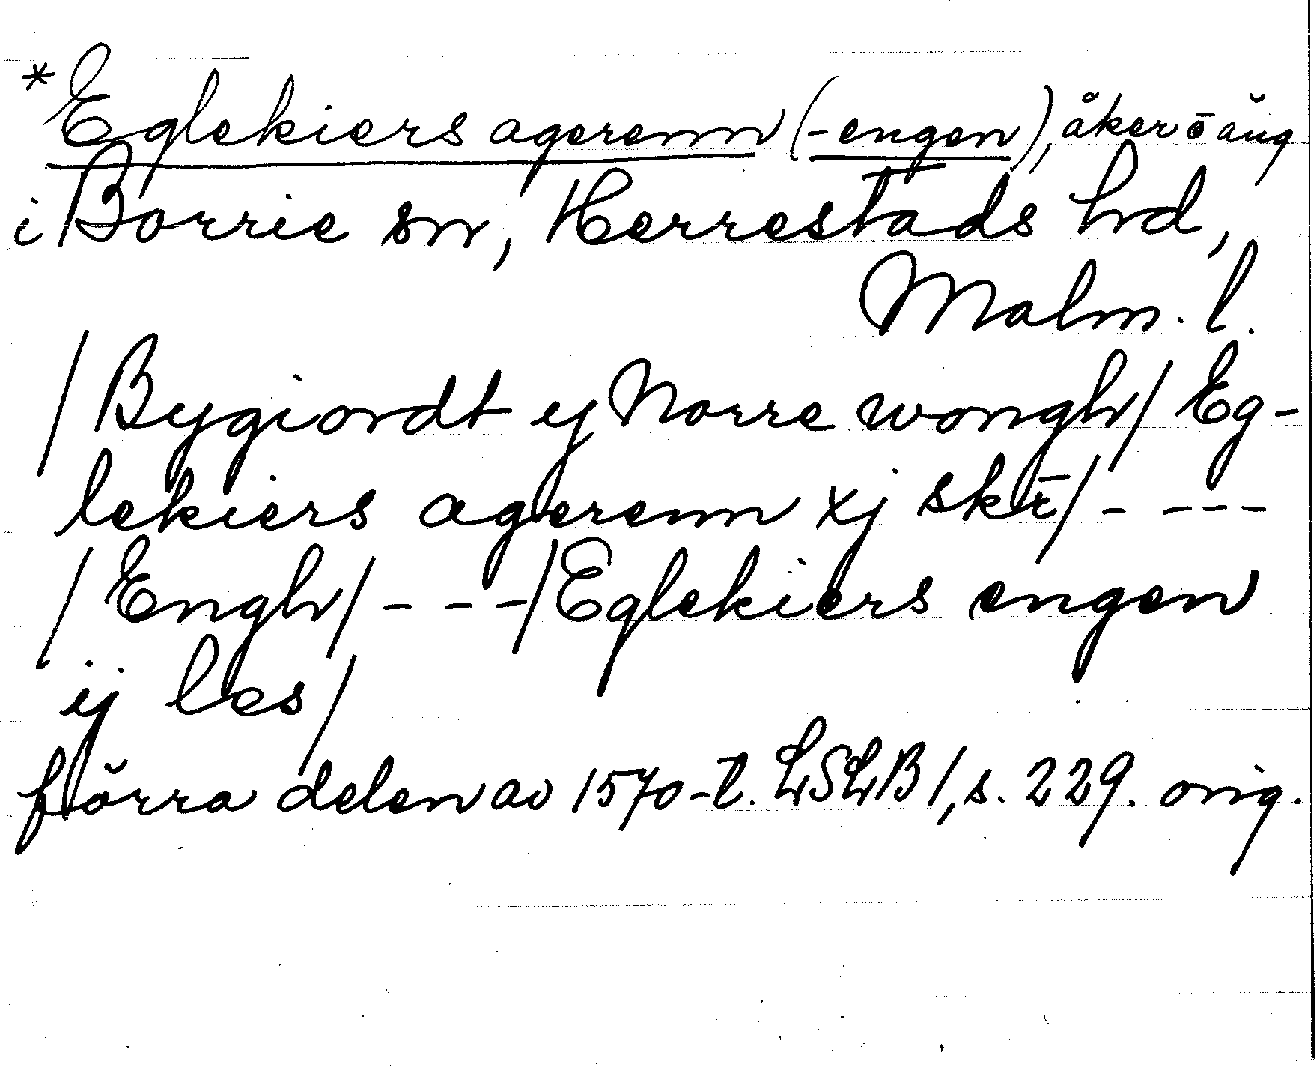 *Eglekiers agerenn (-engen), åker o äng
i Borrie sn, Herrestads hd,
Malm. l.
/Bygiordt ij Norre wongh/ Eg-
lekiers agerenn xj skr̄/- ---
/Engh/ - - -/Eglekiers engen
ij les/
förra delen av 1570-t. LSLB 1, s. 229. orig.